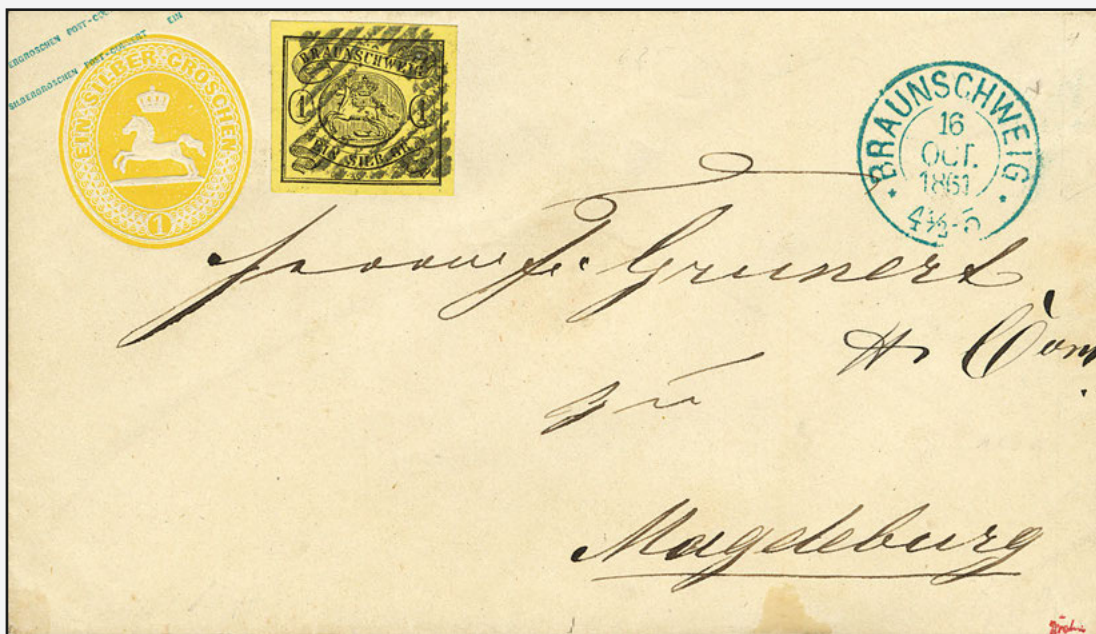 ERGROSCHEN POST-COU
EIN
SILBERGROSCHEN POST-COUVERT
EIN SILBER GROSCHEN
1
BRAUNSCHWEIG
1 1
EIN SILB. GR.
BRAUNSCHWEIG
16
OCT.
1861
4½-5
Herrn F. Grunert
zu
Magdeburg